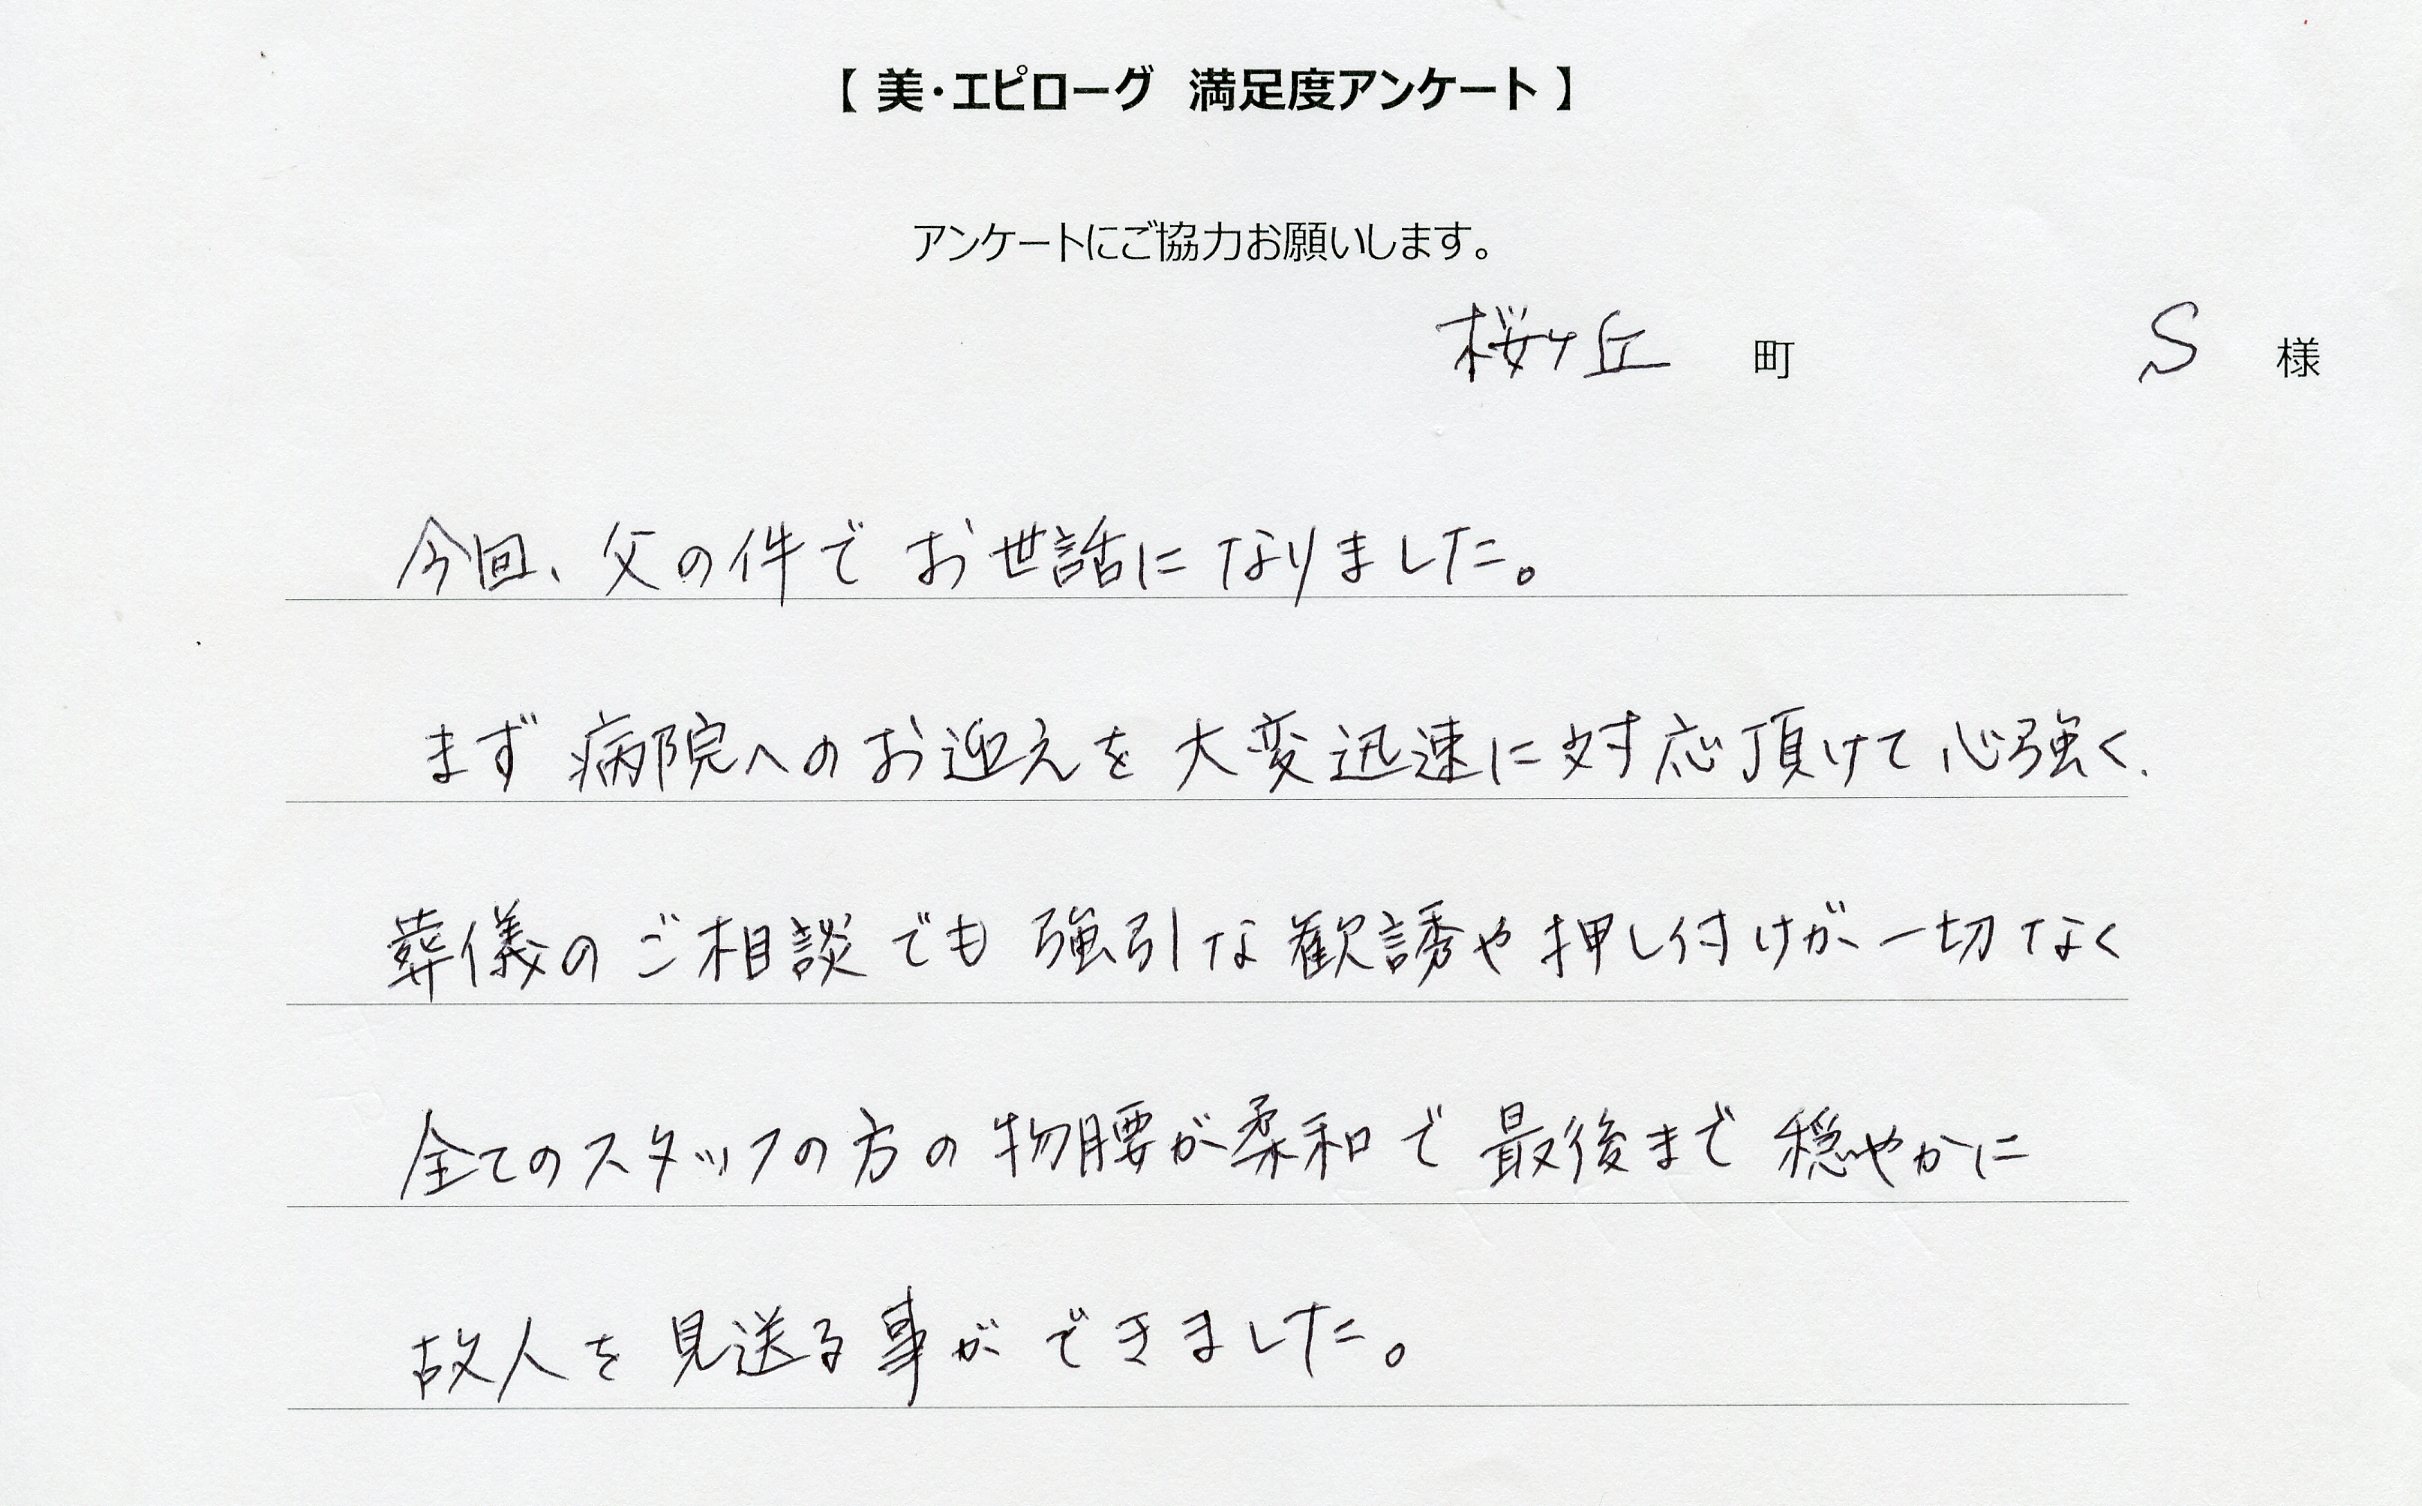 【 美・エピローグ 満足度アンケート 】
アンケートにご協力お願いします。
桜ヶ丘 町 S 様
今回、父の件でお世話になりました。
まず病院へのお迎えを大変迅速に対応頂けて心強く、
葬儀のご相談でも強引な歓誘や押し付けが一切なく
全てのスタッフの方の物腰が柔和で最後まで穏やかに
故人を見送る事ができました。